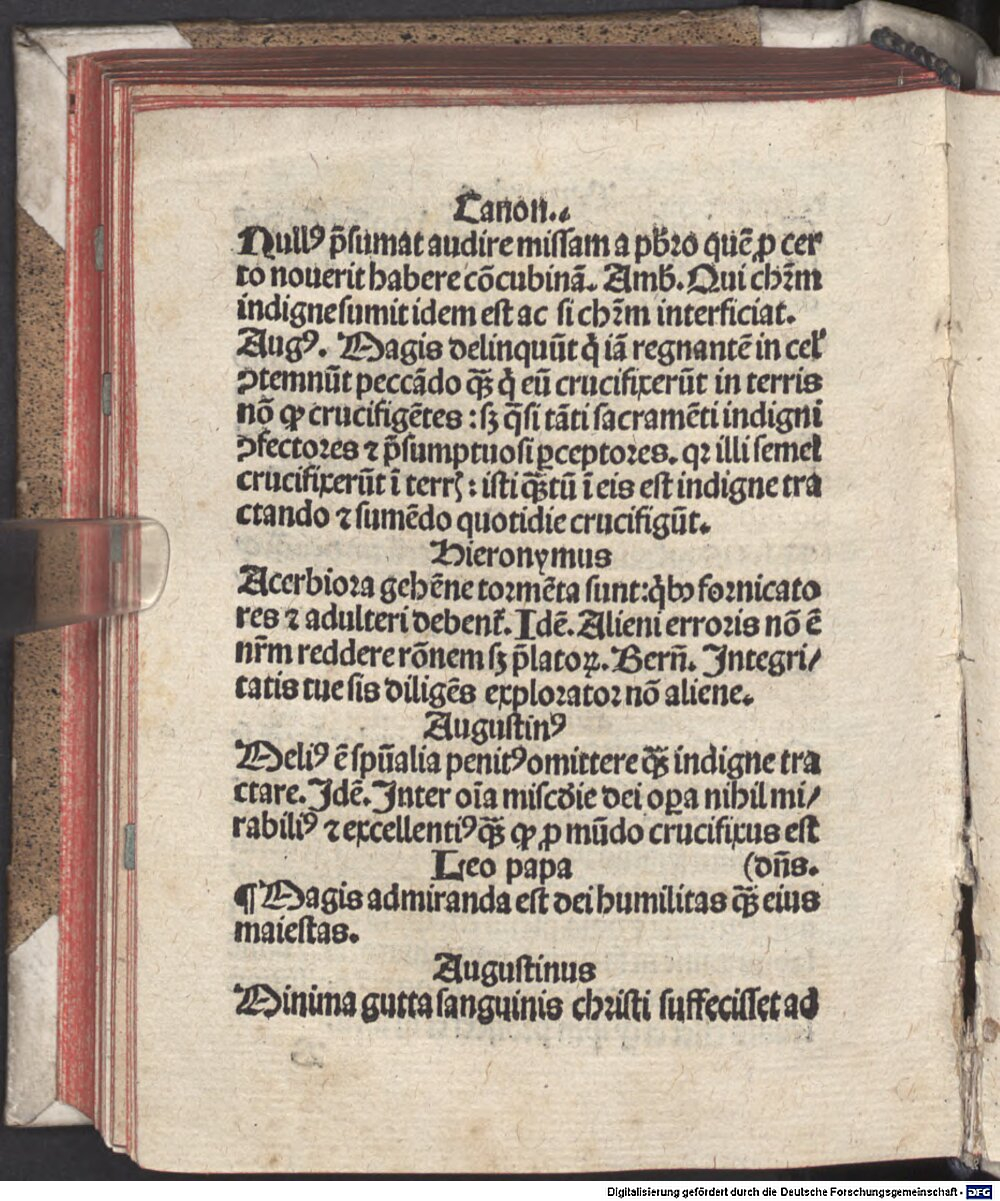 Canon.
Nullꝰ p̄sumat audire missam a pb̄ro quē ꝓ cer
to nouerit habere cōcubinā. Amb̄. Qui chr̄m
indigne sumit idem est ac si chr̄m interficiat.
Augꝰ. Magis delinquūt q̇ iā regnantē in cel̓
ꝯtemnūt peccādo qꝫ̄ q̇ eū crucifixerūt in terris
nō ꝙ crucifigētes : sꝫ q̄si tāti sacramēti indigni
ꝯfectores ⁊ p̄sumptuosi ꝑceptores. qꝛ illi semel
crucifixerūt ī terrꝭ : isti qꝫ̄tū ī eis est indigne tra
ctando ⁊ sumēdo quotidie crucifigūt.
Hieronymus
Acerbiora gehēne tormēta sunt: q̇bꝰ fornicato
res ⁊ adulteri debent᷑. Idē. Alieni erroris nō ē
nr̄m reddere rōnem sꝫ p̄latoꝝ. Bern̄. Integri/
tatis tue sis diligēs explorator nō aliene.
Augustinꝰ
Meliꝰ ē spūalia penitꝰ omittere qꝫ̄ indigne tra
ctare. Idē. Inter oīa miscd̄ie dei oꝑa nihil mi/
rabiliꝰ ⁊ excellentiꝰ qꝫ̄ ꝙ ꝓ mūdo crucifixus est
Leo papa (dn̄s.
¶ Magis admiranda est dei humilitas qꝫ̄ eius
maiestas.
Augustinus
Minima gutta sanguinis christi suffecisset ad
Digitalisierung gefördert durch die Deutsche Forschungsgemeinschaft - DFG